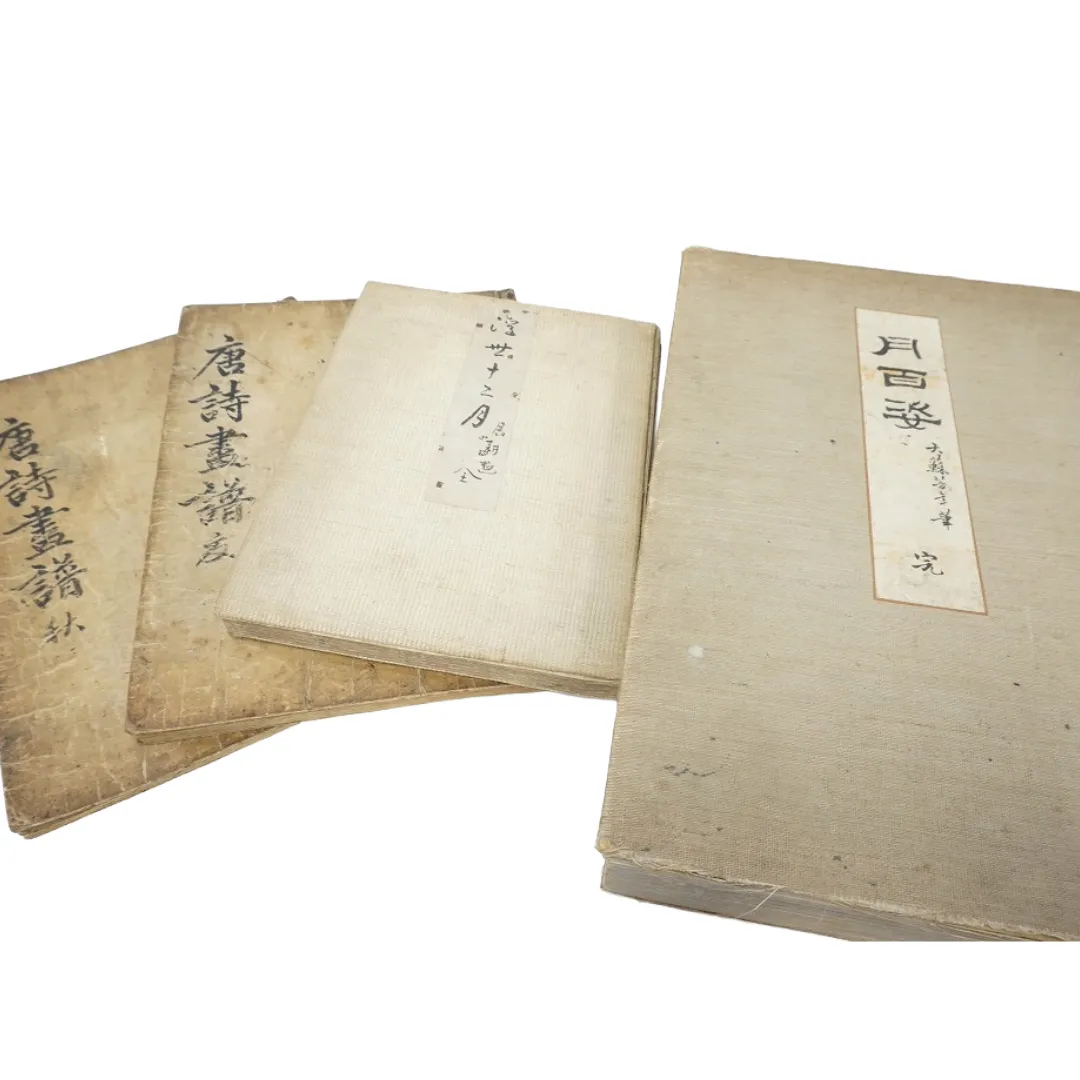 唐詩畫譜
秋
唐詩畫譜
夏
浮世十二月
全
月百姿
大蘇芳年筆
完